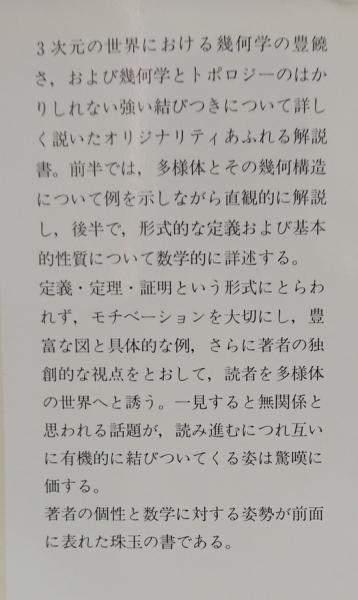 3次元の世界における幾何学の豊饒
さ，および幾何学とトポロジーのはか
りしれない強い結びつきについて詳し
く説いたオリジナリティあふれる解説
書。前半では，多様体とその幾何構造
について例を示しながら直観的に解説
し，後半で，形式的な定義および基本
的性質について数学的に詳述する。
定義・定理・証明という形式にとらわ
れず，モチベーションを大切にし，豊
富な図と具体的な例，さらに著者の独
創的な視点をとおして，読者を多様体
の世界へと誘う。一見すると無関係と
思われる話題が，読み進むにつれ互い
に有機的に結びついてくる姿は驚嘆に
価する。
著者の個性と数学に対する姿勢が前面
に表れた珠玉の書である。